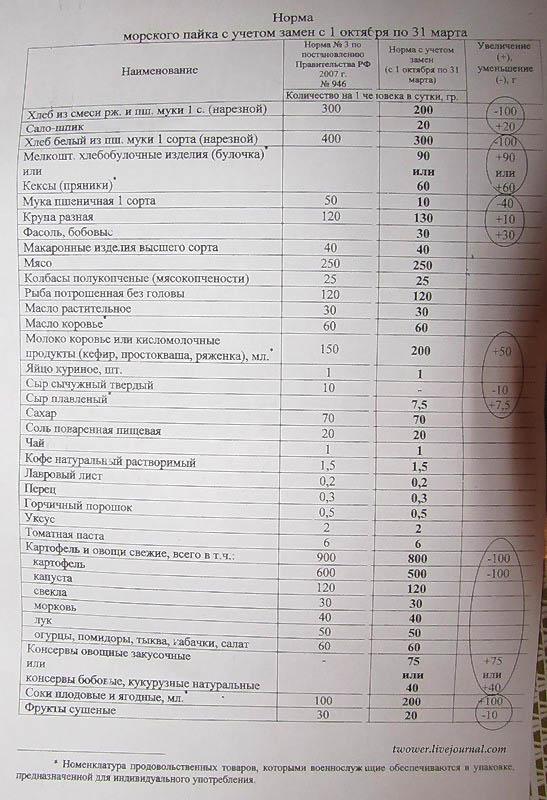 Норма
морского пайка с учетом замен с 1 октября по 31 марта
Наименование | Норма № 3 по постановлению Правительства РФ 2007 г. № 946 | Норма с учетом замен (с 1 октября по 31 марта) | Увеличение (+), уменьшение (-), г
Количество на 1 человека в сутки, гр.
Хлеб из смеси рж. и пш. муки 1 с. (нарезной) 300 200 -100
Сало-шпик 20 +20
Хлеб белый из пш. муки 1 сорта (нарезной) 400 300 -100
Мелкошт. хлебобулочные изделия (булочка)* 90 +90
или или или
Кексы (пряники)* 60 +60
Мука пшеничная 1 сорта 50 10 -40
Крупа разная 120 130 +10
Фасоль, бобовые 30 +30
Макаронные изделия высшего сорта 40 40
Мясо 250 250
Колбасы полукопченые (мясокопчености) 25 25
Рыба потрошенная без головы 120 120
Масло растительное 30 30
Масло коровье* 60 60
Молоко коровье или кисломолочные
продукты (кефир, простокваша, ряженка), мл.* 150 200 +50
Яйцо куриное, шт. 1 1
Сыр сычужный твердый 10 - -10
Сыр плавленый* 7,5 +7,5
Сахар 70 70
Соль поваренная пищевая 20 20
Чай 1 1
Кофе натуральный растворимый 1,5 1,5
Лавровый лист 0,2 0,2
Перец 0,3 0,3
Горчичный порошок 0,5 0,5
Уксус 2 2
Томатная паста 6 6
Картофель и овощи свежие, всего в т.ч.: 900 800 -100
картофель 600 500 -100
капуста 120 120
свекла 30 30
морковь 40 40
лук 50 50
огурцы, помидоры, тыква, кабачки, салат 60 60
Консервы овощные закусочные - 75 +75
или или или
консервы бобовые, кукурузные натуральные 40 +40
Соки плодовые и ягодные, мл.* 100 200 +100
Фрукты сушеные 30 20 -10
twower.livejournal.com
* Номенклатура продовольственных товаров, которыми военнослужащие обеспечиваются в упаковке,
предназначенной для индивидуального употребления.